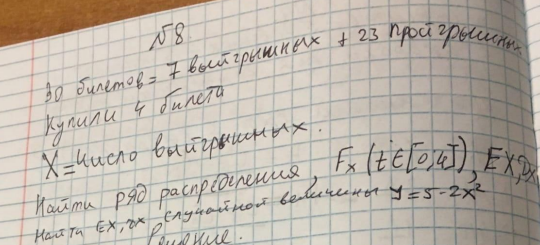 №8
30 билетов = 7 выйгрышных + 23 пройгрышных
Купили 4 билета
X = число выйгрышных.
Найти ряд распределения, Fx (t ∈ [0;4]), EX, DX
Найти EX, DX случайной величины y = 5 - 2x²
Решение.